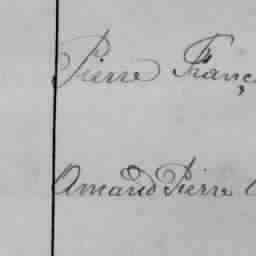 Pierre Franç
Amand Pierre